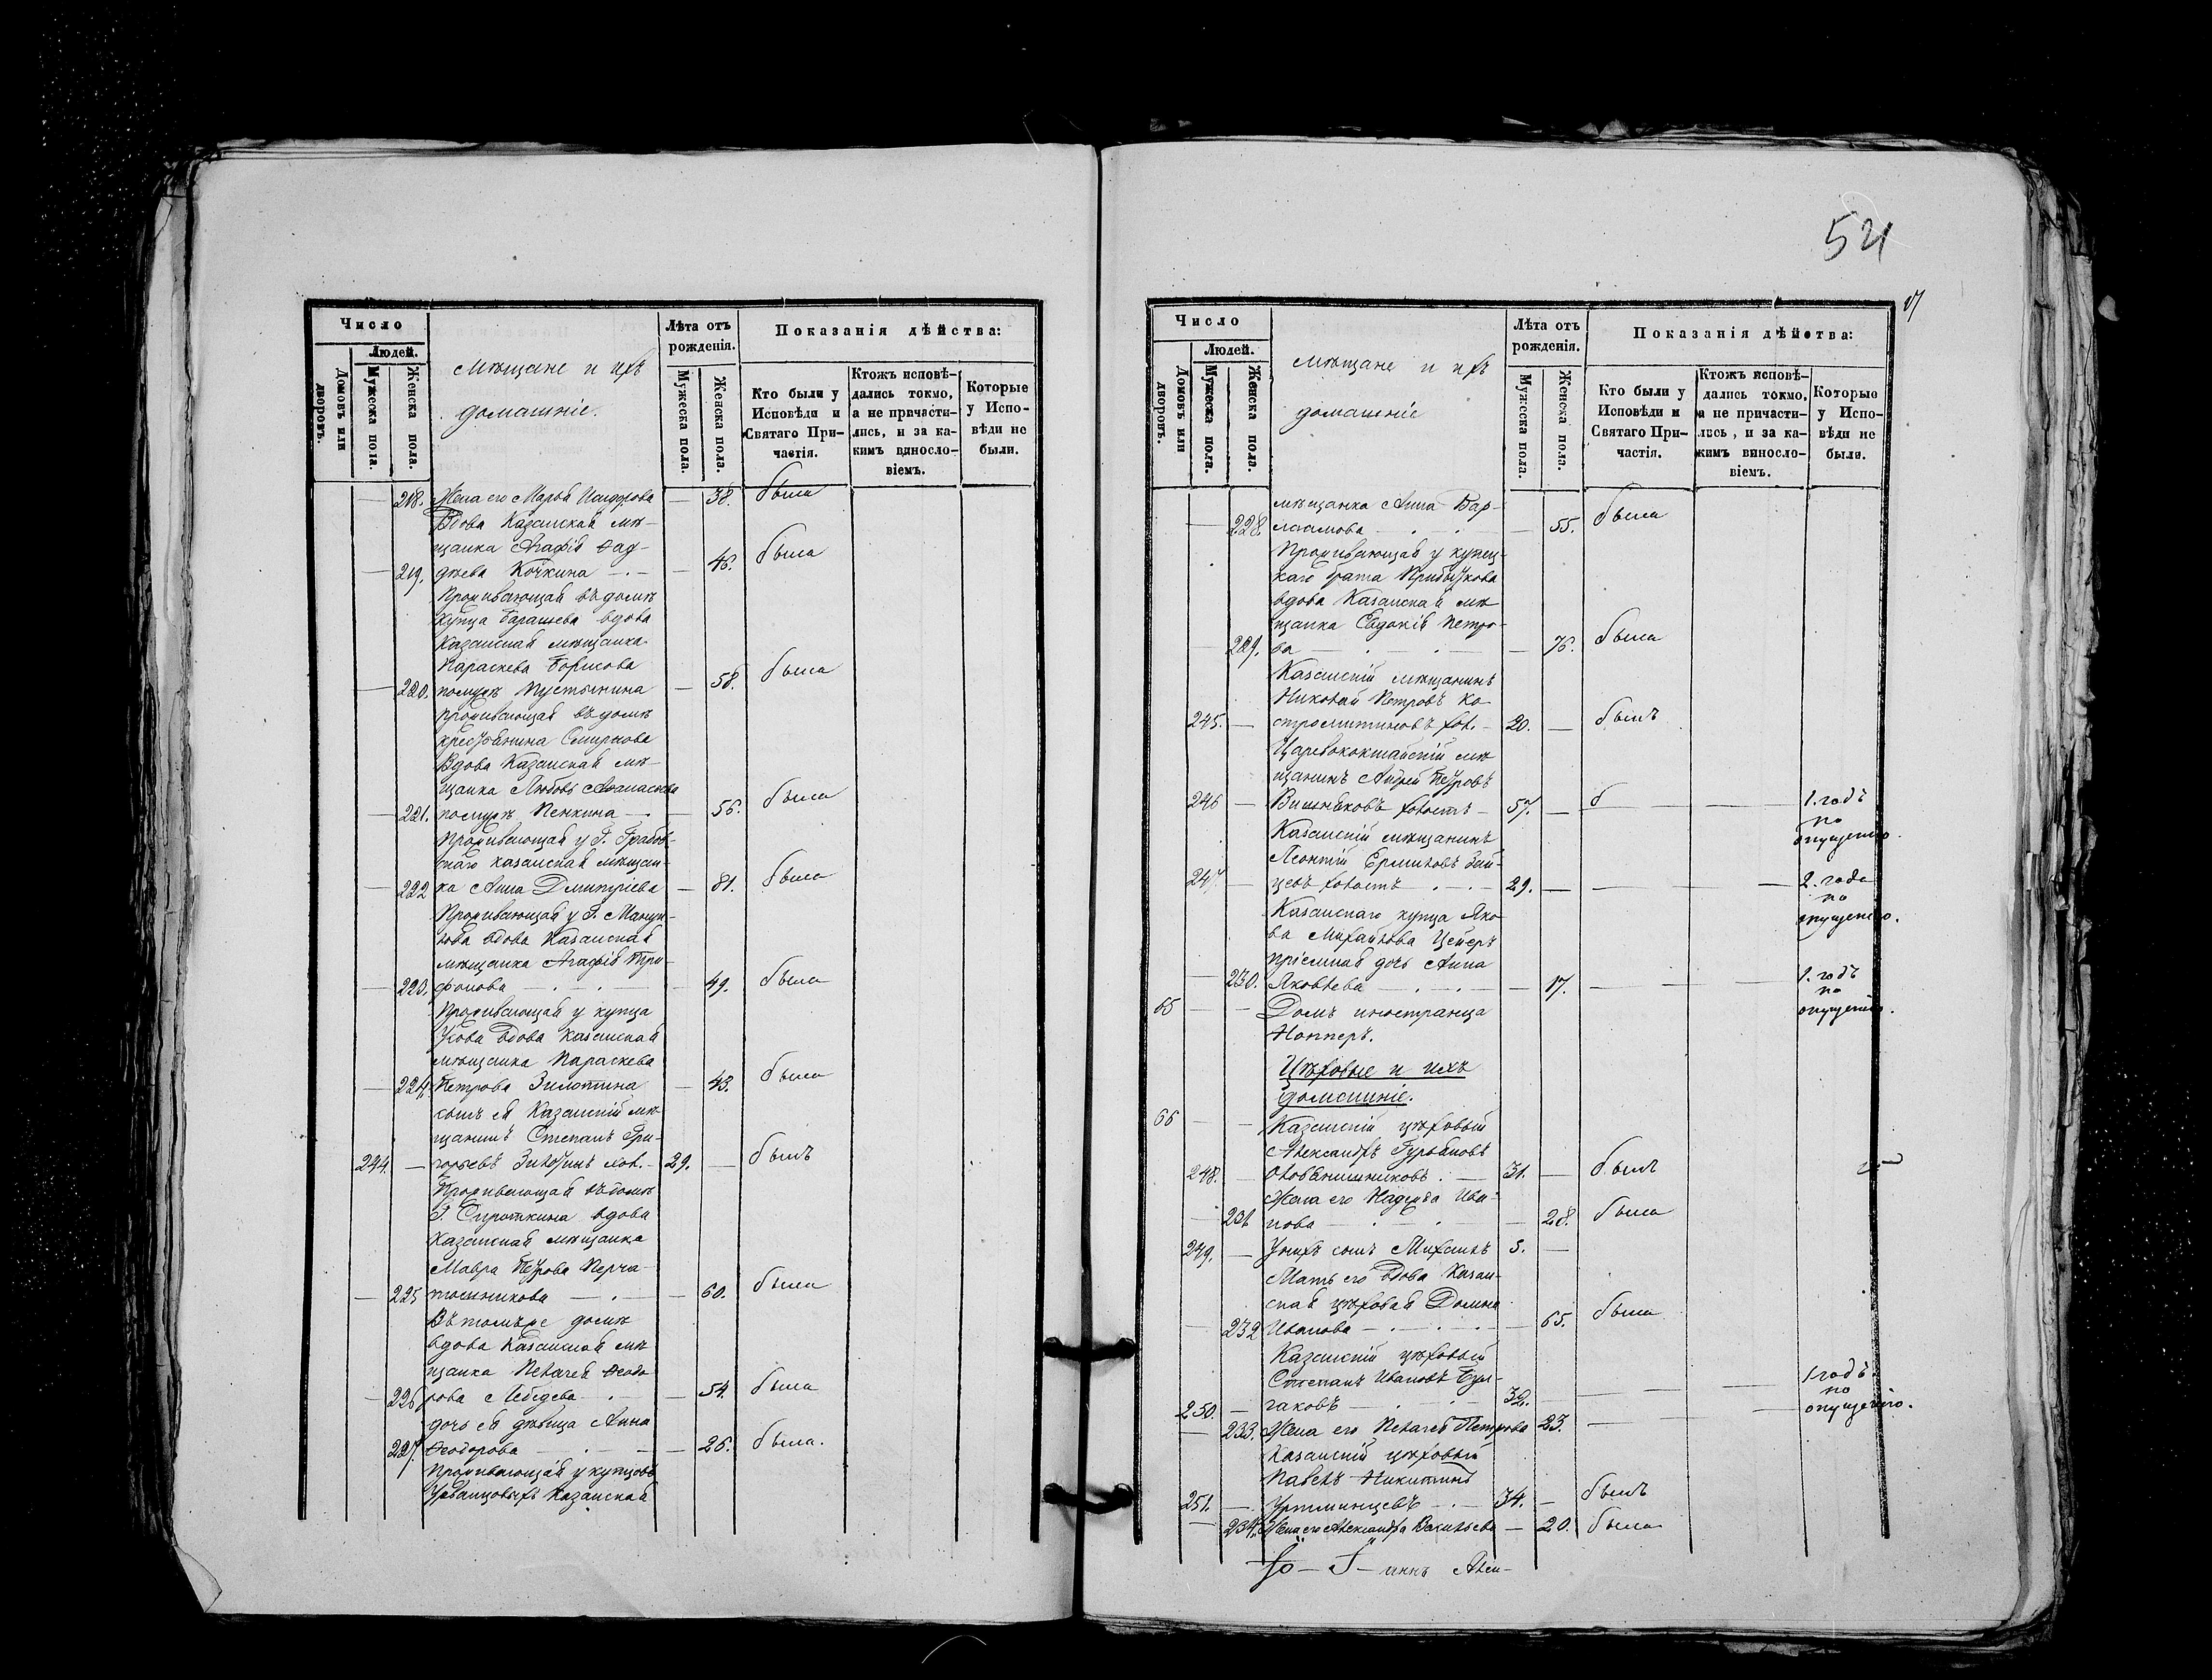 521
17
Число
Людей.
Домовъ или дворовъ.
Мужеска пола.
Женска пола.
мѣщане и ихъ
домашніе.
Лѣта отъ рожденія.
Мужеска пола.
Женска пола.
Показанія дѣйства:
Кто были у Исповѣди и Святаго Причастія.
Ктожъ исповѣдались токмо, а не причастились, и за какимъ винословіемъ.
Которые у Исповѣди не были.
218. Жена его Марѳа Исидорова — 38. была
Вдова Казанская мѣ-
щанка Агафія Ѳад-
219. дѣева Кочкина — 46. была
Проживающая въ домѣ
купца Барашева вдова
Казанская мѣщанка
Параскева Борисова
220. помужѣ Пустынина — 58. была
проживающая въ домѣ
крестьянина Смирнова
Вдова Казанская мѣ-
щанка Любовь Аѳанасьева
221. помужѣ Пенкина — 56. была
Проживающая у Г. Грабов-
скаго казанская мѣщан-
222 ка Анна Дмитріева — 81. была
Проживающая у Г.
вдова Казанская
мѣщанка Агафія Три-
223. фонова — 49. была
Проживающая у купца
Ускова вдова казанская
мѣщанка Параскева
224. Петрова — 43. была
сынъ ея Казанскій мѣ-
щанинъ Степанъ Гри-
244. — горьевъ хол. — 29. — былъ
Проживающая въ домѣ
Г. Сироткина вдова
Казанская мѣщанка
Мавра Петрова Перча-
225 точникова — 60. была
Въ томъ же домѣ
вдова Казанская мѣ
щанка Пелагея Ѳеодо
226 рова Лебедева — 54. была
дочь ея дѣвица Анна
227. Ѳеодорова — 26. была.
Проживающая у купцовъ
Урванцовыхъ Казанская
Число
Людей.
Домовъ или дворовъ.
Мужеска пола.
Женска пола.
мѣщане и ихъ
домашніе
Лѣта отъ рожденія.
Мужеска пола.
Женска пола.
Показанія дѣйства:
Кто были у Исповѣди и Святаго Причастія.
Ктожъ исповѣдались токмо, а не причастились, и за какимъ винословіемъ.
Которые у Исповѣди не были.
мѣщанка Анна Вар-
228. лаамова — 55. была
Проживающая у купец-
каго брата Прибыткова
вдова Казанская мѣ
щанка Евдокія Петро-
229. ва — 76. была
Казанскій мѣщанинъ
Николай Петровъ Ко-
245. — стромитиновъ хол. — 20. — былъ
Царевококшайскій мѣ
щанинъ Андрей Петровъ
246 — Вишняковъ холостъ — 57. — б — — 1. годъ
по
опущенію.
Казанскій мѣщанинъ
Леонтій Ермиловъ Зай-
247. — цевъ холостъ — 29. — — — 2. года
по
опущенію.
Казанскаго купца Яко-
ва Михайлова Цейеръ
пріемная дочь Анна
230. Яковлева — 17. — — — 1. годъ
по
опущенію.
65 — — Домъ иностранца
Ноппертъ.
Цѣховые и ихъ
домашніе.
66 — — Казанскій цѣховый
Александръ Гурьяновъ
248. — Оловянишниковъ. — 31. — былъ
Жена его Надежда Ива-
231 нова — 28. была
249. — У нихъ сынъ Михаилъ 5. —
Мать его вдова Казан-
ская цѣховая Домна
232 Иванова — 65. была
Казанскій цѣховый
Степанъ Ивановъ Бул-
250. — гаковъ — 32. — — — 1 годъ
по
опущенію.
233. Жена его Пелагея Петрова 23. — —
Казанскій цѣховый
Павелъ Никитинъ
251. — Уртминцевъ — 34. — былъ
234. Жена его Александра Васильева — 20. была